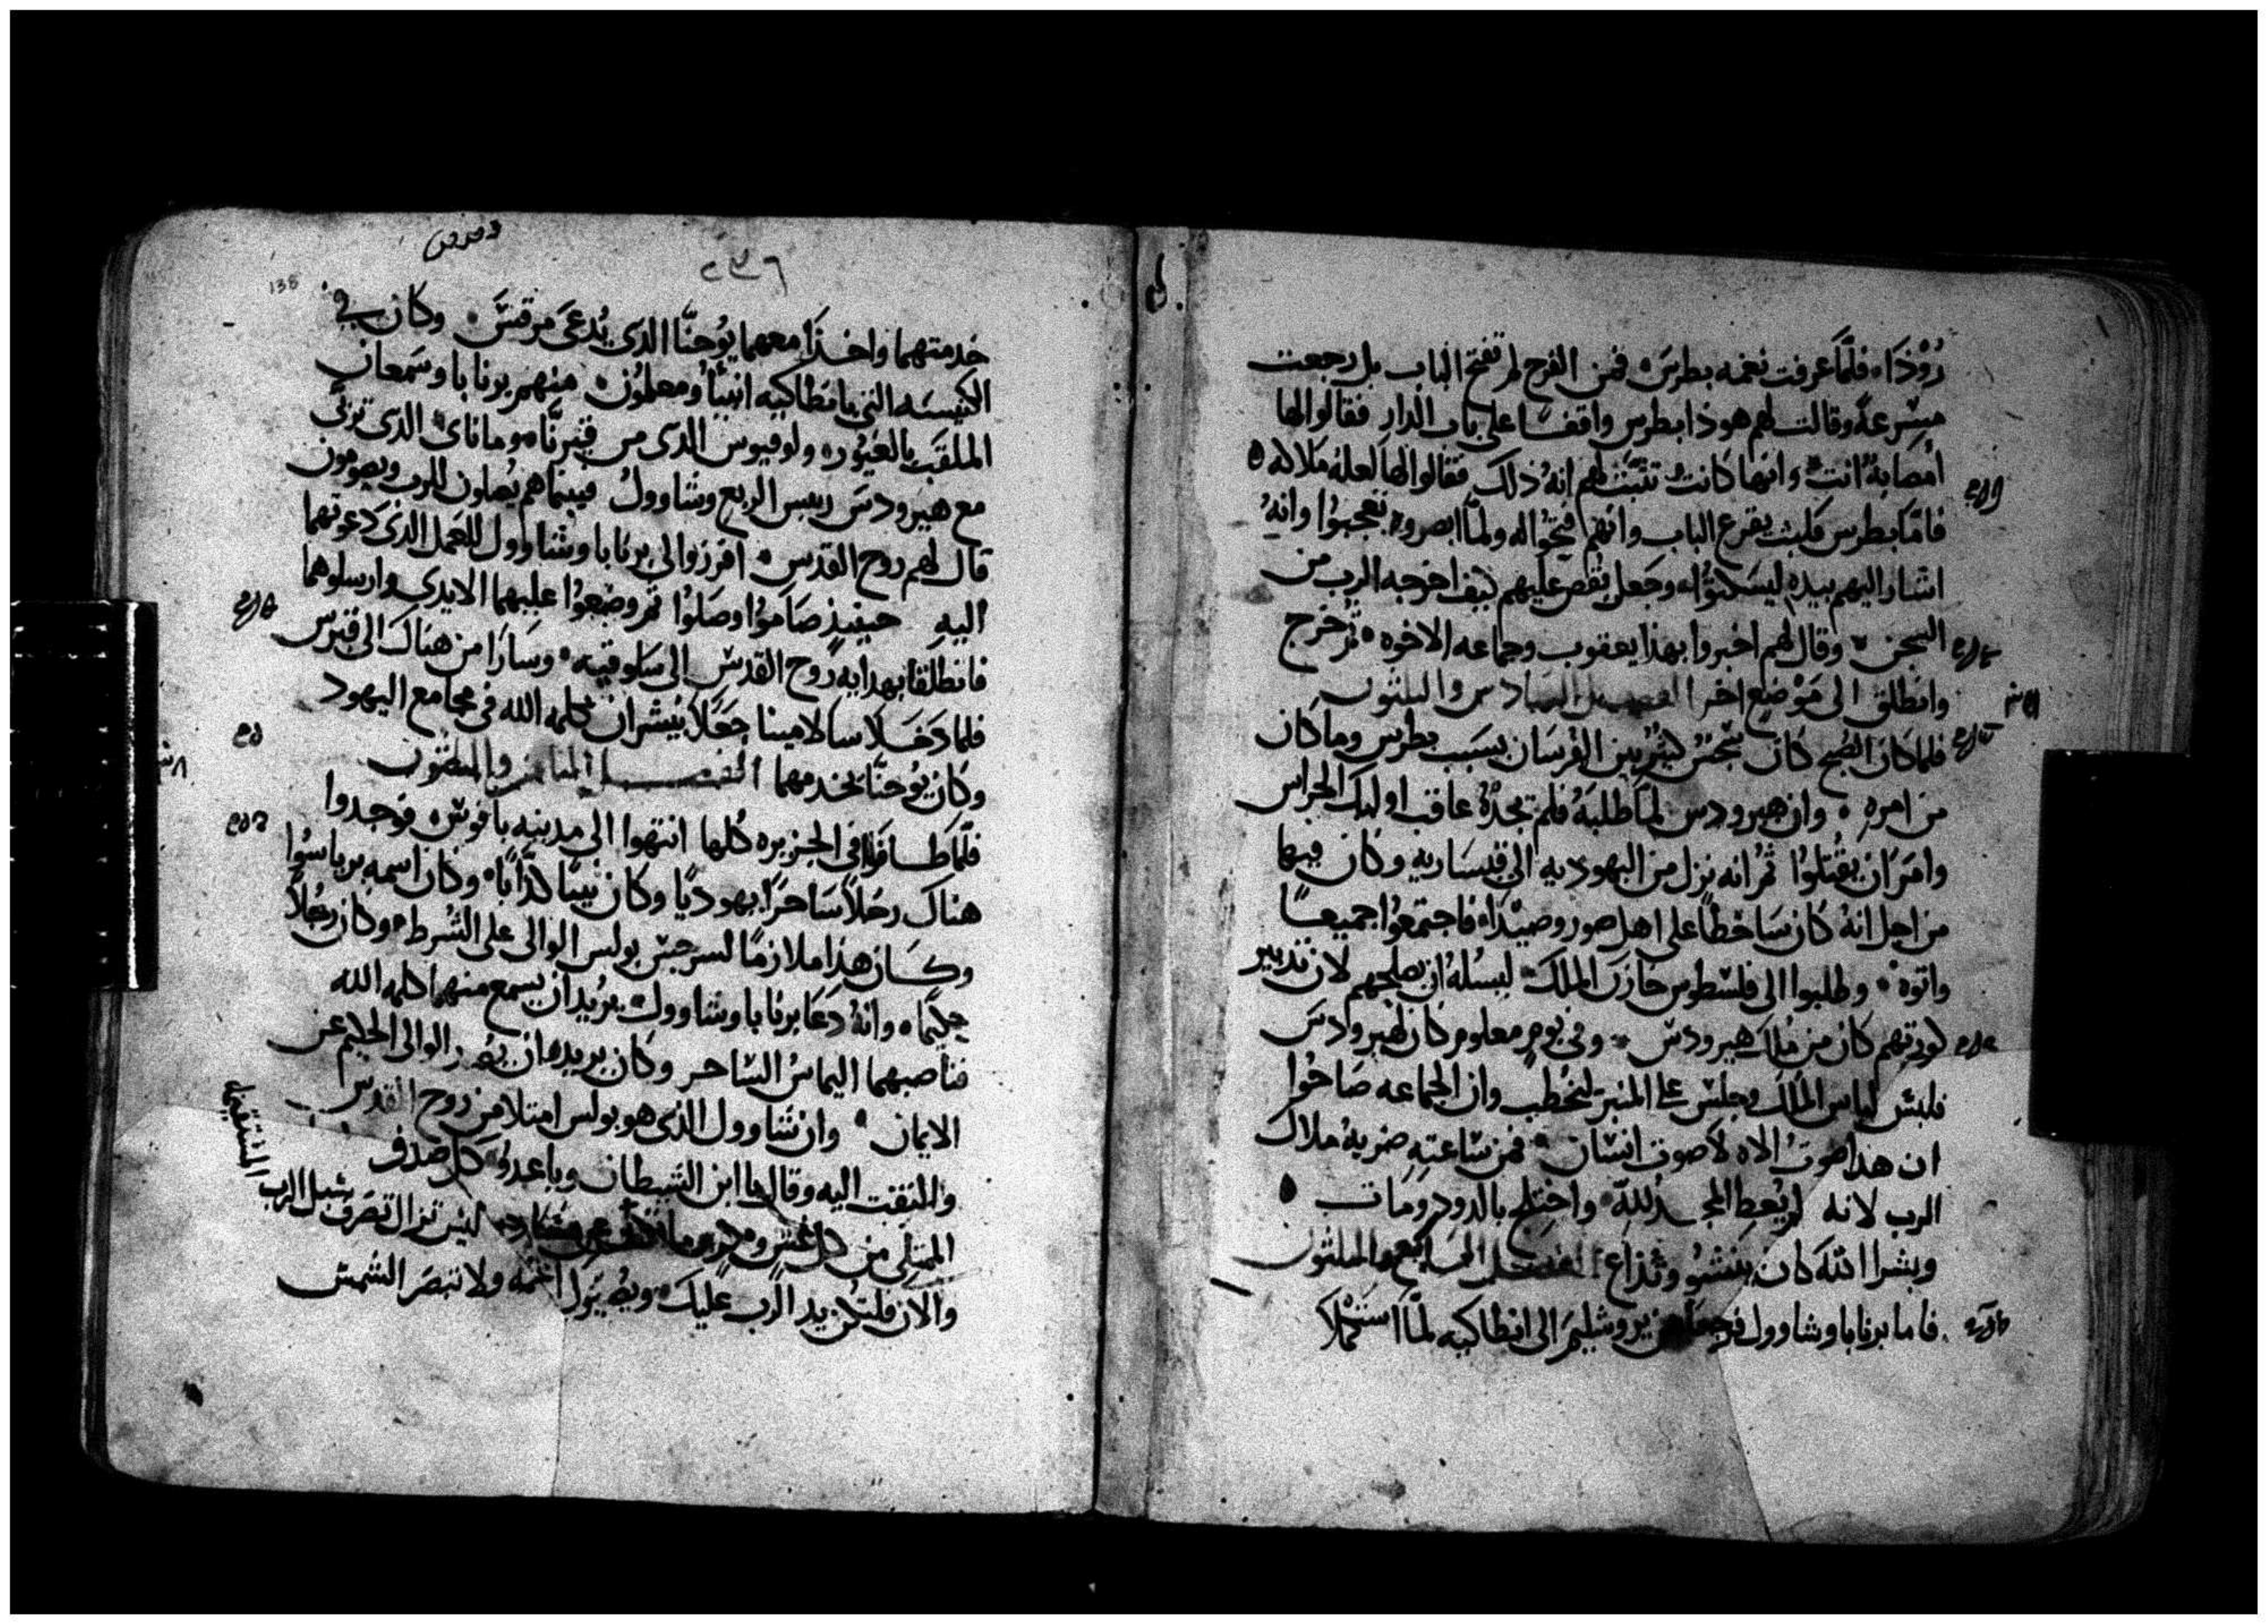 رُوْذَا، فلمَّا عرفت نغمه بطرس، فمن الفرح لم تفتح الباب بل رجعت
مسْرعةً وقالت لهم هوذا بطرس واقفًا على باب الدار فقالوا لها
أمصَابةٌ انت، وانها كانت تثبّت لهم انهُ ذلك فقالوا لها لعله ملاكه ٥
فامَّا بطرس فلبث يقرع الباب وانهم فتحُوا له ولمَّا ابصروه تعجبُوا وانهُ
اشار اليهم بيده ليسكتوُا، وجعل يقص عليهم كيف اخرجه الرب من
السجن، وقال لهم اخبروا بهذا يعقوب وجماعه الاخوه، ثمُ خرج
وانطلق الى مَوْضِع اخر الفصل السادس والثلثون
فلما كان الصُبح كان سجسٌ كثيرٌ بين الفرسَان بسَبب بطرس وما كان
من امره، وان هيرودس لمَّا طلبَهُ فلم يجدُهُ عاقب اوليك الحراس
وامَرَ ان يقُتلوُا ثمُ انه نزل من اليهوديه الى قيسَاريه وكان فيها
من اجل انهُ كان سَاخطًا على اهل صور وصَيْدَا، فاجتمعُوا جميعًا
واتوهُ، وطلبوا الى فلسْطوس خازن الملك، ليسُلهُ ان يصلحهم لان تدبير
كورتهم كان من مُلك هيرودسْ، وفى يومٍ معلوم كان هيرودس
فلبسْ لباس المُلك وجلسْ على المنبر لِيخُطب وان الجماعه صَاحُوا
ان هذا صوتُ الاه لا صوت انسْان، فمن سَاعته ضربهُ ملاك
الرب لانه لم يُعطِ المجدُ للّه، واختلج بالدود ومات ٥
وبشرا الله كان ينشوُ وتذاع الفصل السابع والثلثون
فاما برنابا وشاوول فرجعا من يروشليم الى انطاكيه لمَّا استكملا
٢٣٦
138
خدمتهما واخذَا معهما يوُحنَّا الذى يُدعَى مرقسْ، وكان فى
الكنيسَه التى بانطاكيه انبيَا ومعلموُن، منهم برنابا وسمعان
الملقَب بالغيُور، ولوقيوس الذى من قيرنَّا، ومانائ الذى تربّى
مع هيرودسَ رييس الربع وشاوولُ فبينما هم يُصَلون للرب ويصومون
قال لهم روح القدس، افرزوا لى برنابا وشاوول للعَمل الذى دعوتهما
اليه حينيذ صَامُوا وصَلوُا ثم وضعُوا عليهما الايدى وارسلوهما
فانطلقا بهدايه رُوح القدسْ الى سَلوقيه، وسَارَا من هناك الى قبرس
فلما دَخَلا سالامينا جعَلا يبشران بكلمه الله فى مجامع اليهود
وكان يوُحنَّا يخدمهما الفصل الثامن والثلثون
فلَّما طافا فى الجزيره كلها انتهوا الى مدينه بافوسْ، فوجدوا
هناك رجلاً سَاحرًا يهوديًا وكان نبيًا كذَّابًا، وكان اسمه برياسُوا
وكان هذا ملازمًا لسرجيسْ بولس الوالى على الشُرط، وكان رجُلاً
حكيمًا، وانهُ دعَا برنابا وشاوول، يريُد ان يسمع منهما كلمه الله
فناصبهما اليماسُ السَاحر وكان يريد ان يصد الوالى الحكيم عن
الايمان، وان شاوول الذى هو بولس امتلا من روح القدس
والتفت اليه وقال يا ابن الشيطان ويا عدو كل صدق
الممتلى من كل غش ومكر ليس تزال تصَرف سُبل الرب
المستقيمه
والان فلتكُن يد الرب عليك، ويُصيبُك اعمَه ولا تبصَر الشمسْ